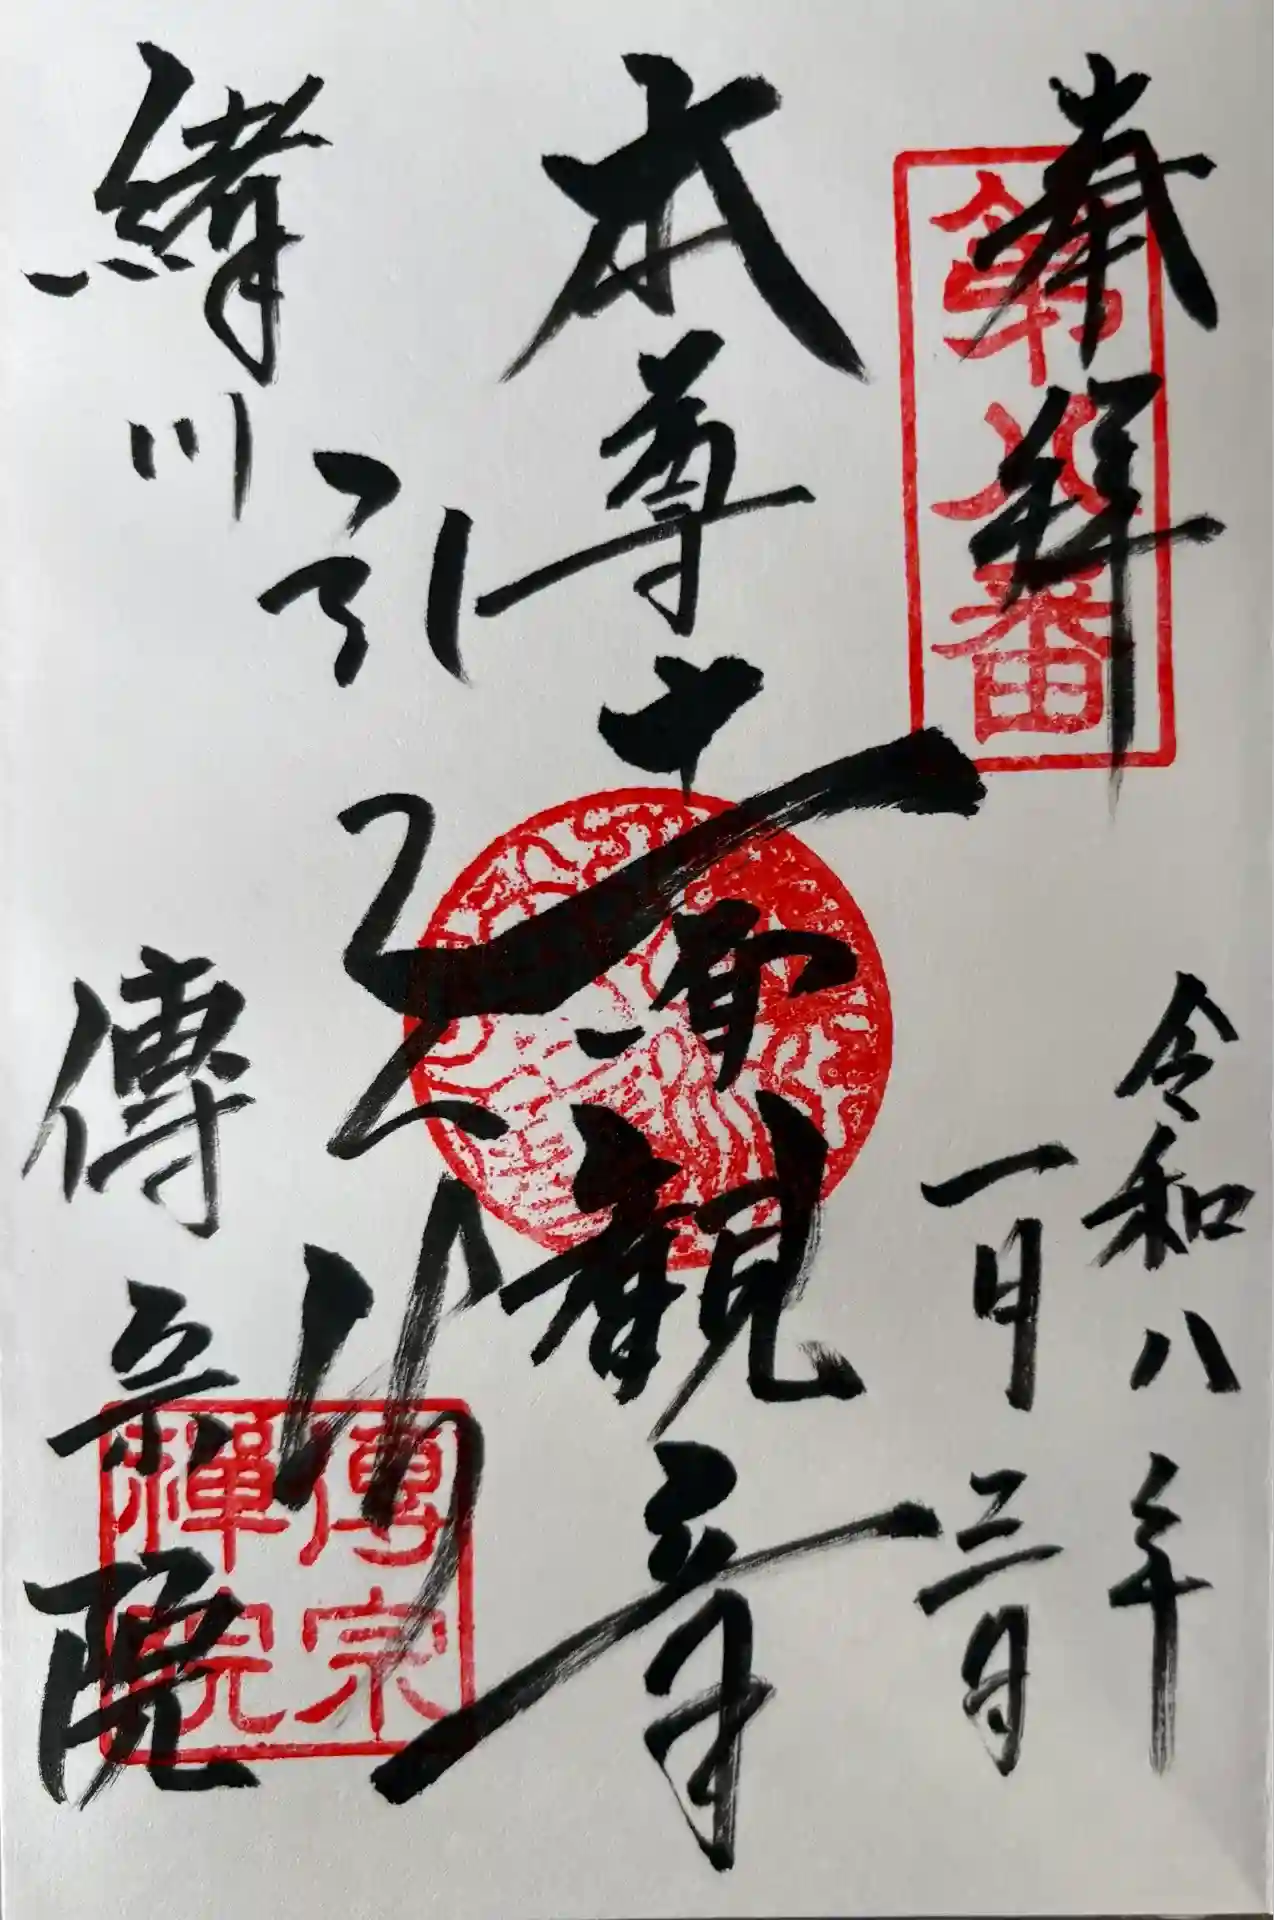 奉拝
第八番
令和八年
一月三日
本尊十一面観音
引弘仏
緯川
傳宗院
傳宗
禅院